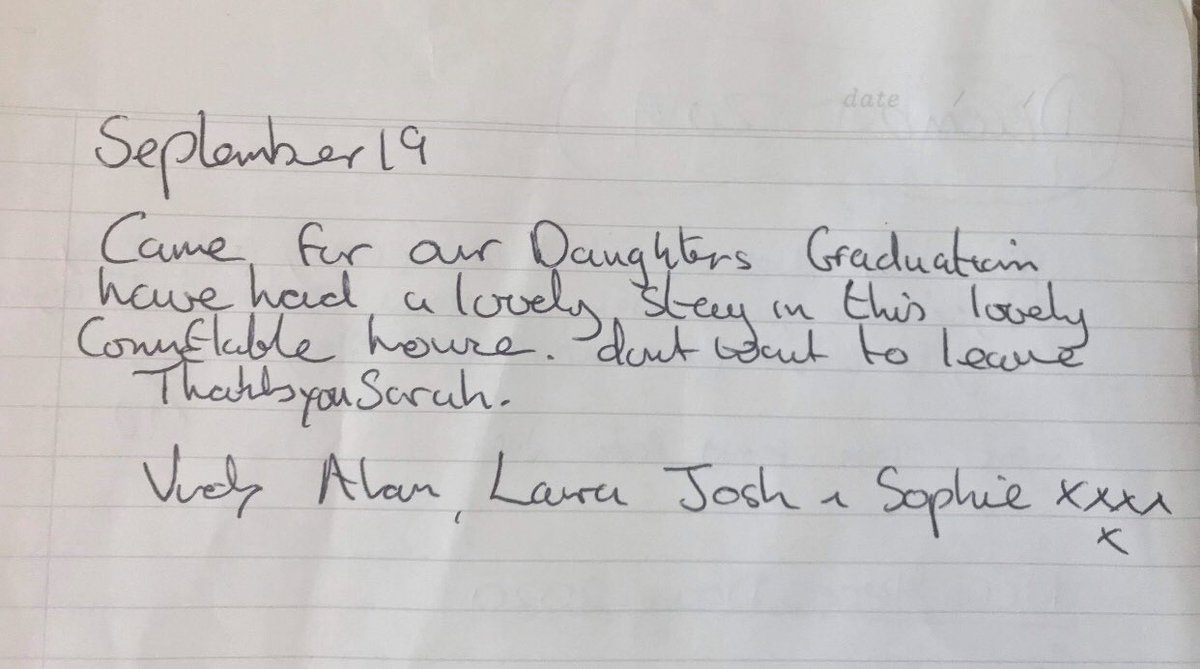 date / /
September 19
Came for our Daughters Graduation
have had a lovely stay in this lovely
Comftable house. dont want to leave
Thankyou Sarah.
Alan, Laura Josh & Sophie xxxx
x